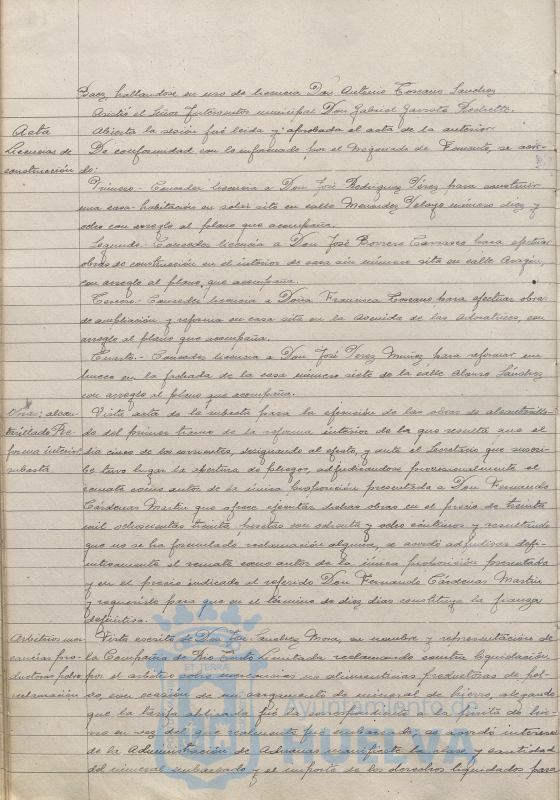 Baez, hallandose en uso de licencia Don Antonio Toscano Sanchez
Asistió el Señor Interventor municipal Don Gabriel Garrote
Acta
Abierta la sesión fué leida y aprobada el acta de la anterior.
Licencias de construcción
De conformidad con lo informado por el Negociado de Fomento, se acor-
dó:
Primero.- Conceder licencia a Don José Rodriguez Pérez para construir
una casa-habitación en solar sito en calle Menendez Pelayo número diez y
ocho con arreglo al plano que acompaña.
Segundo.- Conceder licencia a Don José Borrero Carrasco para efectuar
obras de construcción en el interior de casa sin número sita en calle Aragón,
con arreglo al plano, que acompaña.
Tercero.- Conceder licencia a Doña Francisca Toscano para efectuar obra
de ampliación y reforma en casa sita en la Avenida de las Adoratrices, con
arreglo al plano que acompaña.
Cuarto.- Conceder licencia a Don José Perez Muñoz para reformar un
hueco en la fachada de la casa número siete de la calle Alonso Sánchez
con arreglo al plano que acompaña.
alcan-
tarillado Re-
forma interior
subasta
Vista acta de la subasta para la ejecución de las obras de alcantarilla-
do del primer tramo de la reforma interior de la que resulta que el
dia cinco de los corrientes, designado al efecto, y ante el Secretario que suscri-
be tuvo lugar la apertura de pliegos, adjudicandose provisionalmente el
remate como autor de la única proposición presentada a Don Fernando
Cárdenas Martin que ofrece ejecutar dichas obras en el precio de treinta
mil ochocientas treinta pesetas con ochenta y ocho céntimos y resultando
que no se ha formulado reclamación alguna, se acordó adjudicar defi-
nitivamente el remate como autor de la única proposición presentada
y en el precio indicado al referido Don Fernando Cárdenas Martin
y requerirlo para que en el término de diez dias constituya la fianza
definitiva.
Arbitrios mer-
cancias pro-
ductoras polvo
reclamación
Visto escrito de Don José Sanchez Mora, en nombre y representación de
la Compañia de Rio Tinto Limitada reclamando contra liquidación
por el arbitrio sobre mercancias no alimenticias productoras de pol-
vo, con ocasión de un cargamento de mineral de hierro, alegando
que la tarifa aplicada fué la correspondiente a la pirita de hie-
rro en vez del que realmente fué embarcado, se acordó interesar
de la Administración de Aduanas manifieste la clase y cantidad
del mineral embarcado y el importe de los derechos liquidados para
Ayuntamiento de
HUELVA